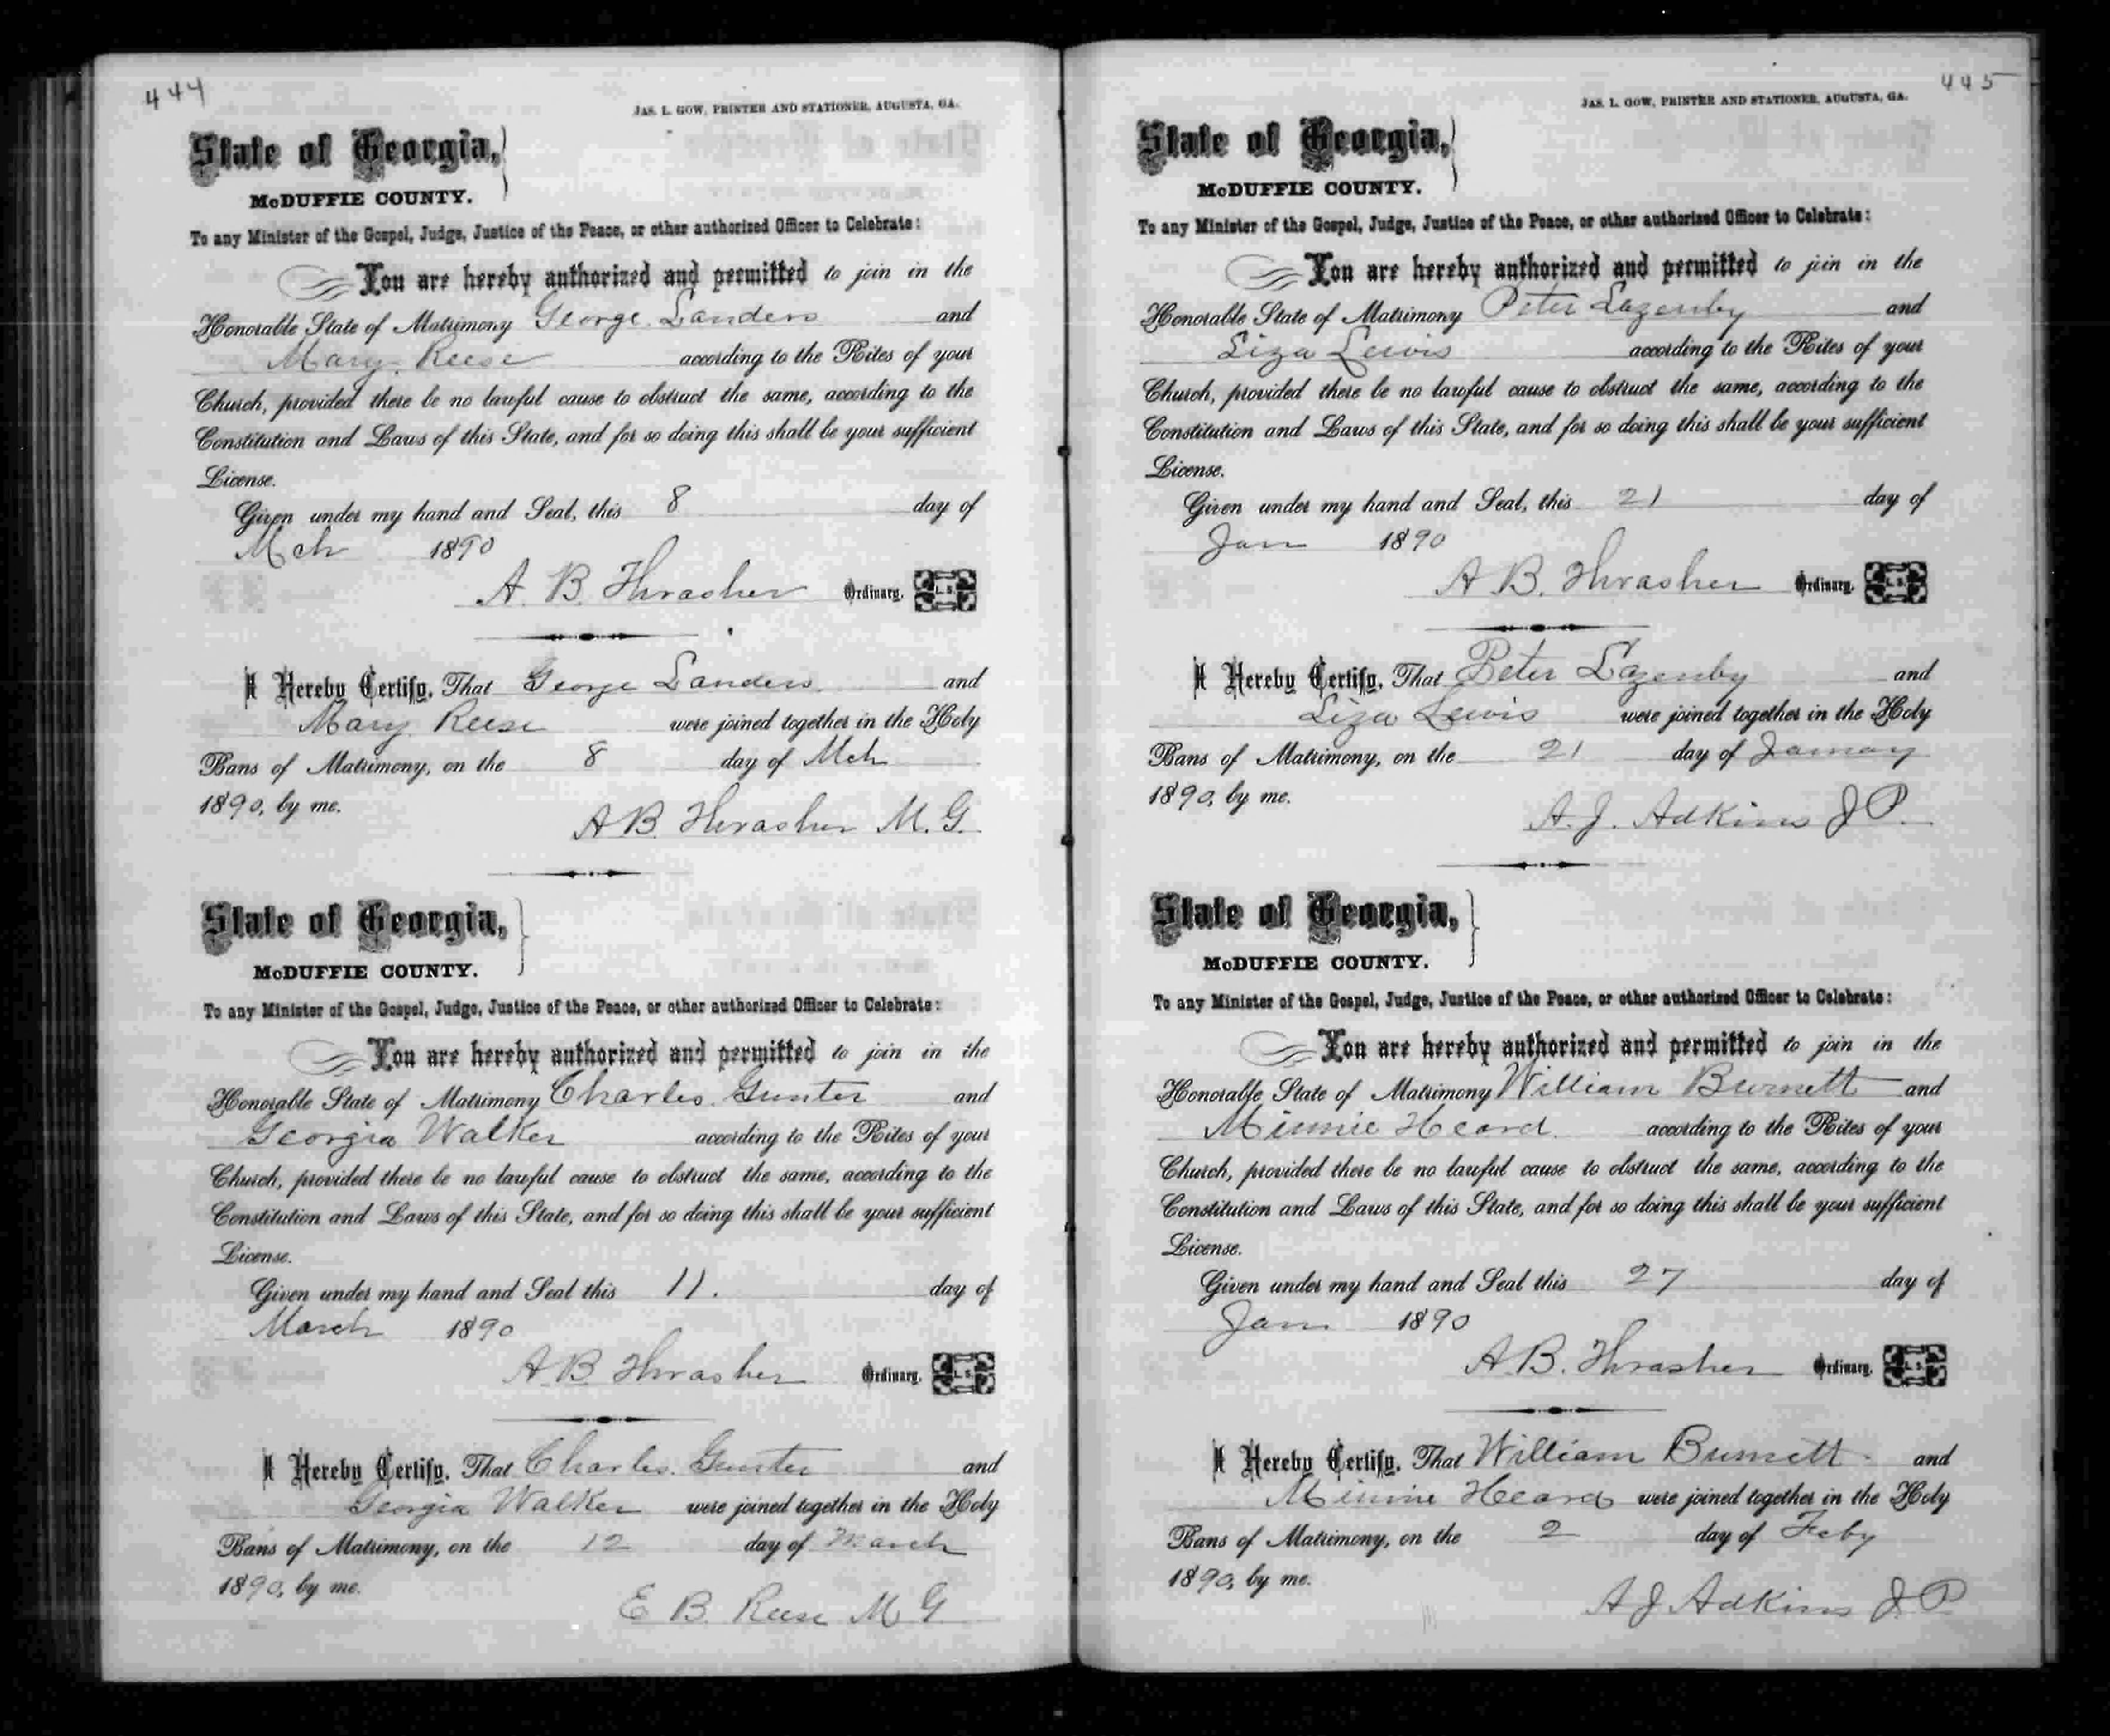 444
JAS. L. GOW, PRINTER AND STATIONER, AUGUSTA, GA.
State of Georgia,
McDUFFIE COUNTY.
To any Minister of the Gospel, Judge, Justice of the Peace, or other authorized Officer to Celebrate:
You are hereby authorized and permitted to join in the
Honorable State of Matrimony George Landers and
Mary Reese according to the Rites of your
Church, provided there be no lawful cause to obstruct the same, according to the
Constitution and Laws of this State, and for so doing this shall be your sufficient
License.
Given under my hand and Seal, this 8 day of
Mch 1890
A. B. Thrasher Ordinary. L. S.
I Hereby Certify, That George Landers and
Mary Reese were joined together in the Holy
Bans of Matrimony, on the 8 day of Mch
1890, by me.
A B. Thrasher M. G.
State of Georgia,
McDUFFIE COUNTY.
To any Minister of the Gospel, Judge, Justice of the Peace, or other authorized Officer to Celebrate:
You are hereby authorized and permitted to join in the
Honorable State of Matrimony Charles Gunter and
Georgia Walker according to the Rites of your
Church, provided there be no lawful cause to obstruct the same, according to the
Constitution and Laws of this State, and for so doing this shall be your sufficient
License.
Given under my hand and Seal this 11. day of
March 1890
A. B. Thrasher Ordinary. L. S.
I Hereby Certify, That Charles Gunter and
Georgia Walker were joined together in the Holy
Bans of Matrimony, on the 12 day of March
1890, by me.
E B. Reese M G
445
JAS. L. GOW, PRINTER AND STATIONER, AUGUSTA, GA.
State of Georgia,
McDUFFIE COUNTY.
To any Minister of the Gospel, Judge, Justice of the Peace, or other authorized Officer to Celebrate:
You are hereby authorized and permitted to join in the
Honorable State of Matrimony Peter Lazenby and
Liza Lewis according to the Rites of your
Church, provided there be no lawful cause to obstruct the same, according to the
Constitution and Laws of this State, and for so doing this shall be your sufficient
License.
Given under my hand and Seal, this 21 day of
Jan 1890
A B. Thrasher Ordinary. L. S.
I Hereby Certify, That Peter Lazenby and
Liza Lewis were joined together in the Holy
Bans of Matrimony, on the 21 day of January
1890, by me.
A. J. Adkins J P.
State of Georgia,
McDUFFIE COUNTY.
To any Minister of the Gospel, Judge, Justice of the Peace, or other authorized Officer to Celebrate:
You are hereby authorized and permitted to join in the
Honorable State of Matrimony William Burnett and
Minnie Heard according to the Rites of your
Church, provided there be no lawful cause to obstruct the same, according to the
Constitution and Laws of this State, and for so doing this shall be your sufficient
License.
Given under my hand and Seal this 27 day of
Jan. 1890
A. B. Thrasher Ordinary. L. S.
I Hereby Certify, That William Burnett and
Minnie Heard were joined together in the Holy
Bans of Matrimony, on the 2 day of Feby
1890, by me.
A J Adkins J. P.